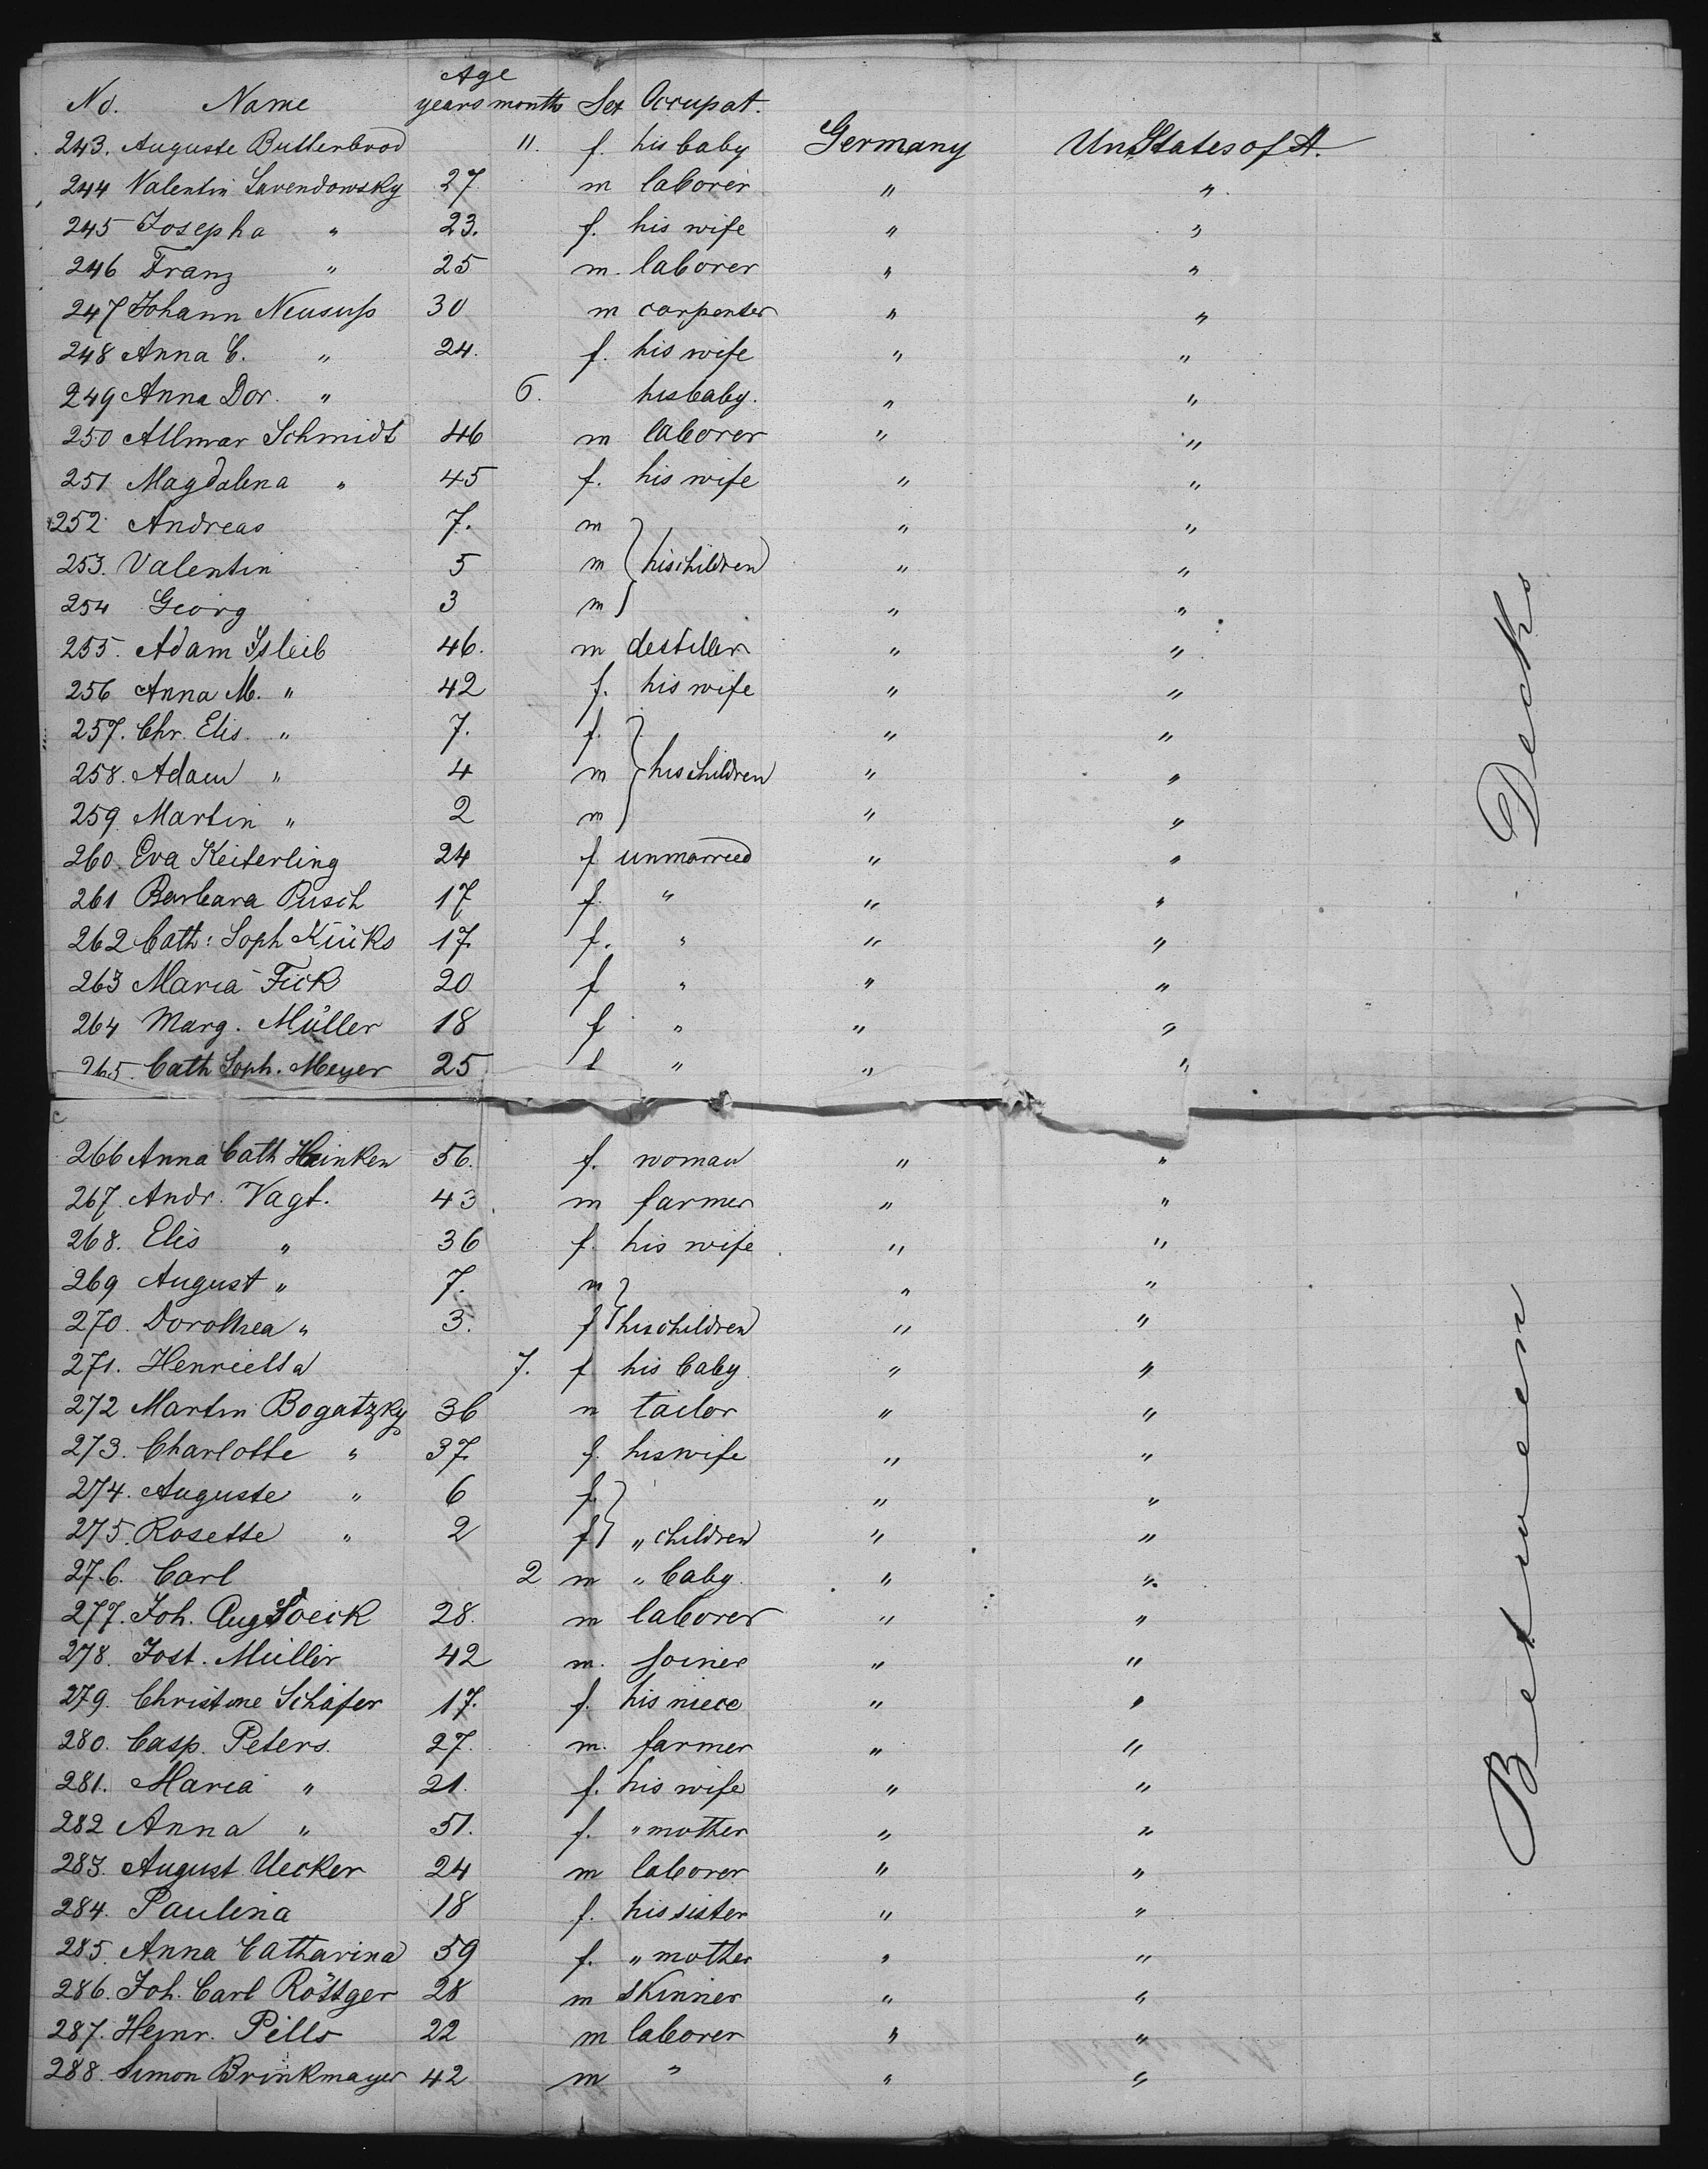 Age
No. Name years months Sex Occupat.
243. Auguste Butterbrod 11. f. his baby Germany Un States of A.
244 Valentin Lavendowsky 27. m laborer " "
245 Josepha " 23. f. his wife " "
246 Franz " 25 m. laborer " "
247 Johann Neusuß 30 m carpenter " "
248 Anna C. " 24. f. his wife " "
249 Anna Dor. " 6. his baby. " "
250 Allmar Schmidt 46 m laborer " "
251 Magdalena " 45 f. his wife " "
252 Andreas 7. m " "
253. Valentin 5 m his children " "
254 Georg 3 m " "
255. Adam Isleib 46. m destiller " "
256 Anna M. " 42 f. his wife " "
257. Chr. Elis. " 7. f. " "
258. Adam " 4 m his children " "
259. Martin " 2 m " "
260. Eva Keiterling 24 f unmarried " "
261 Barbara Pusch 17 f. " " "
262 Cath: Soph Küüks 17. f. " " "
263 Maria Fick 20 f " " "
264 Marg. Müller 18 f " " "
265. Cath Soph. Meyer 25 f " " "
266 Anna Cath Heinken 56. f. woman " "
267. Andr. Vagt. 43. m farmer " "
268. Elis " 36 f. his wife " "
269 August " 7. m " "
270. Dorothea " 3. f his children " "
271. Henrietta 7. f his baby " "
272 Martin Bogatzky 36 m tailor " "
273. Charlotte " 37. f. his wife " "
274. Auguste " 6 f. " "
275. Rosette " 2 f " children " "
276. Carl 2 m " baby " "
277. Joh. Aug 28. m laborer " "
278. Jost. Müller 42 m. joiner " "
279. Christine Schäfer 17. f. his niece " "
280. Casp. Peters. 27. m. farmer " "
281. Maria " 21. f. his wife " "
282 Anna " 51. f. " mother " "
283. August Uecker 24 m laborer " "
284. Paulina 18 f. his sister " "
285. Anna Catharina 59 f. " mother " "
286. Joh. Carl Röttger 28 m skinner " "
287. Heinr. Pills 22 m laborer " "
288. Simon Brinkmayer 42 m " " "
Between Decks